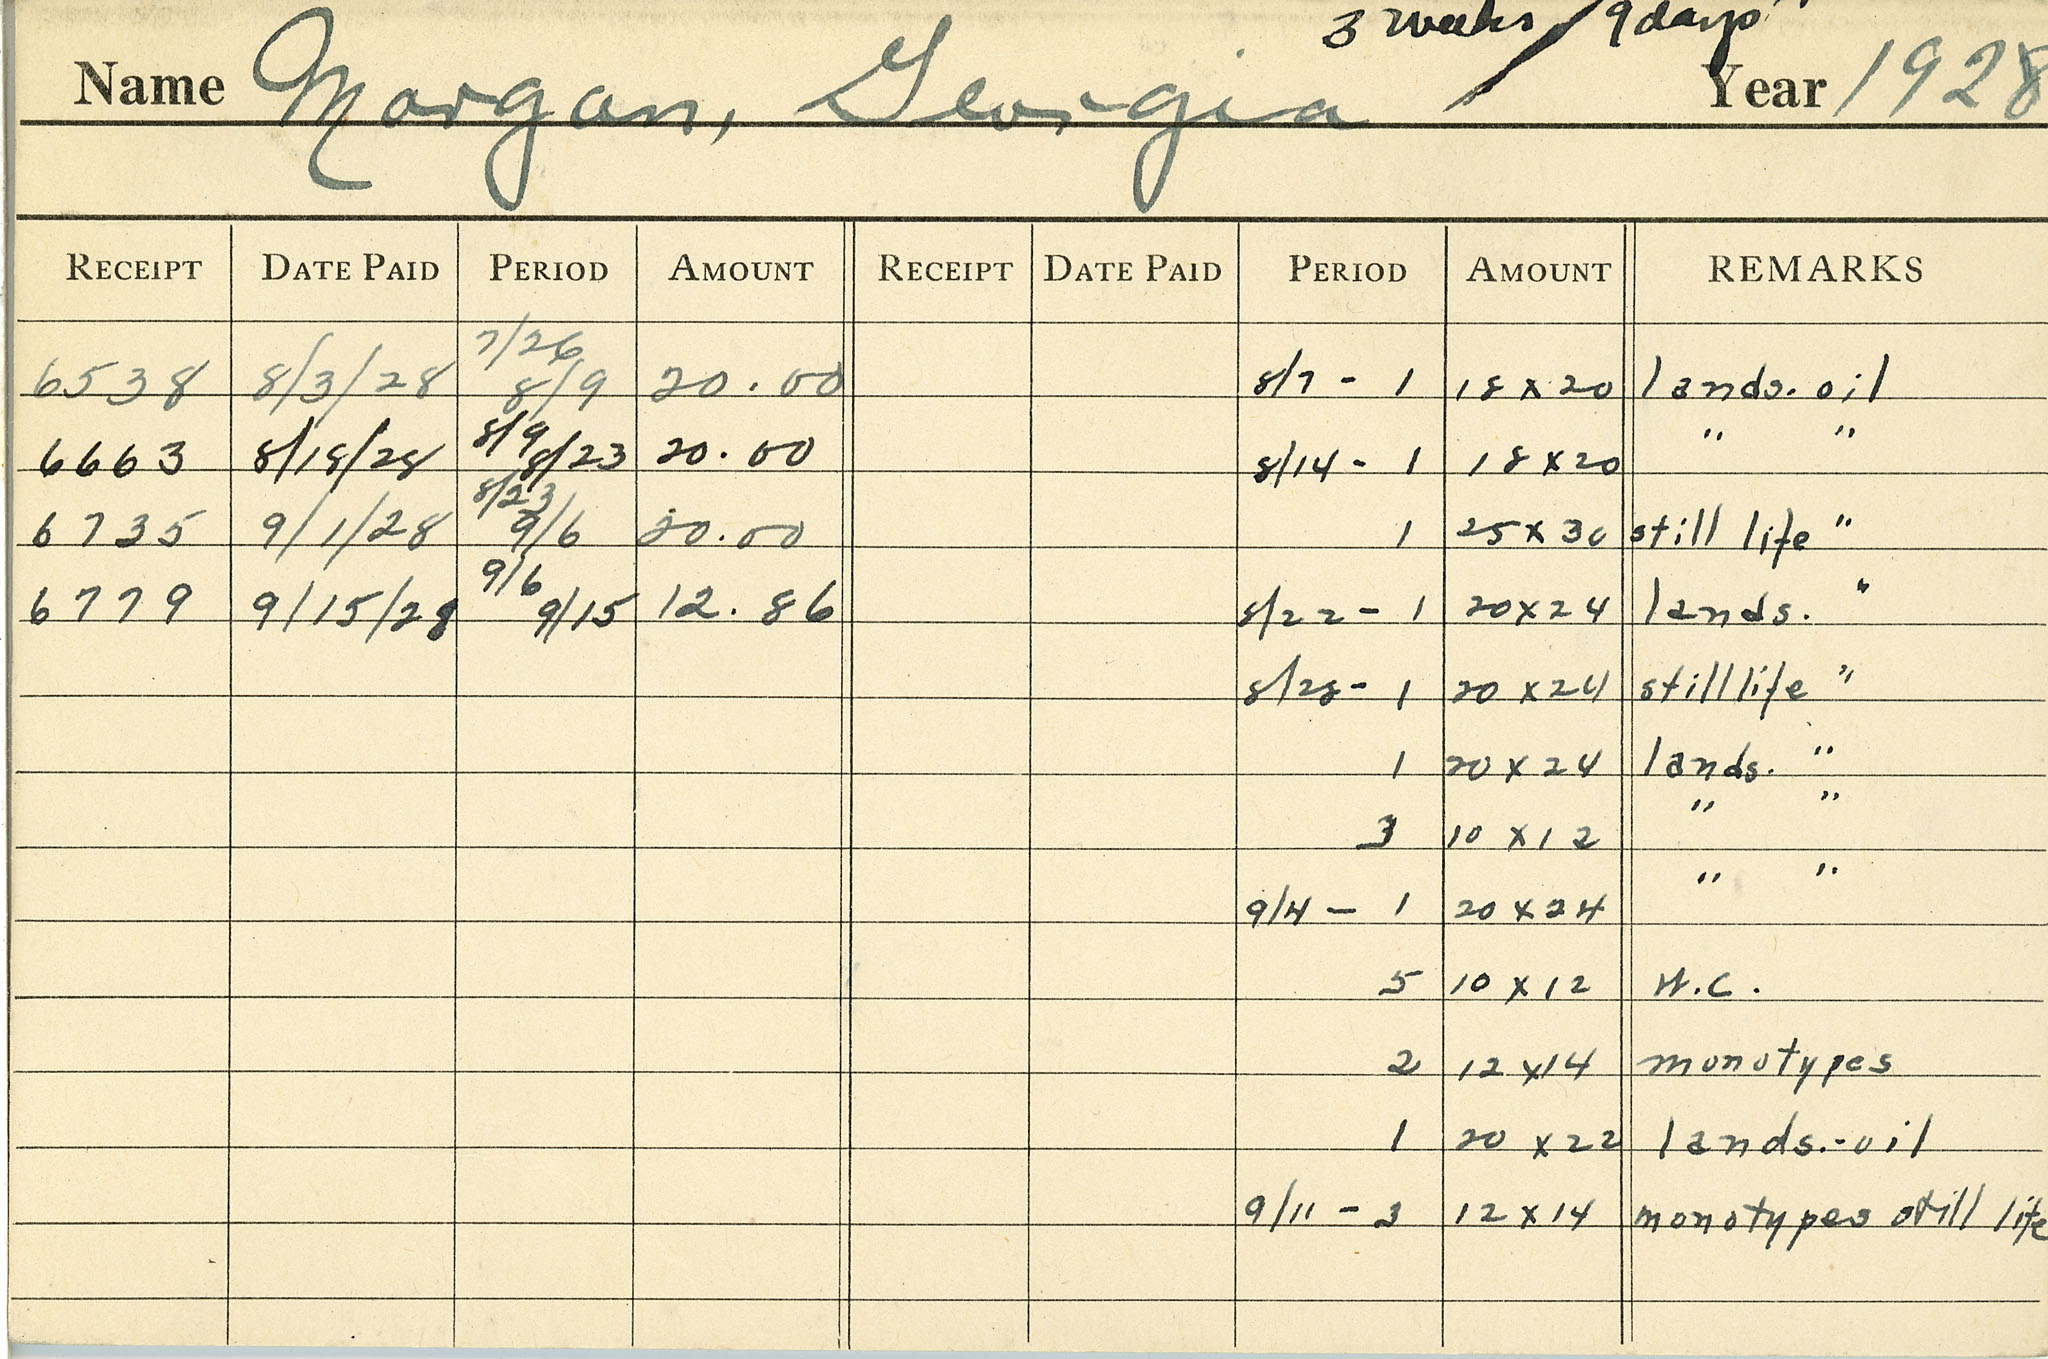 3 weeks / 9 days
Name Morgan, Georgia Year 1928
RECEIPT DATE PAID PERIOD AMOUNT RECEIPT DATE PAID PERIOD AMOUNT REMARKS
7/26
6538 8/3/28 8/9 20.00 8/7 - 1 18 x 20 lands. oil
8/9 " "
6663 8/18/28 8/23 20.00 8/14 - 1 18 x 20
8/23
6735 9/1/28 9/6 20.00 1 25 x 30 still life "
9/6
6779 9/15/28 9/15 12.86 8/22 - 1 20 x 24 lands. "
8/28 - 1 20 x 24 still life "
1 20 x 24 lands. "
" "
3 10 x 12
" "
9/4 - 1 20 x 24
5 10 x 12 W.C.
2 12 x 14 monotypes
1 20 x 22 lands. - oil
9/11 - 3 12 x 14 monotypes still life